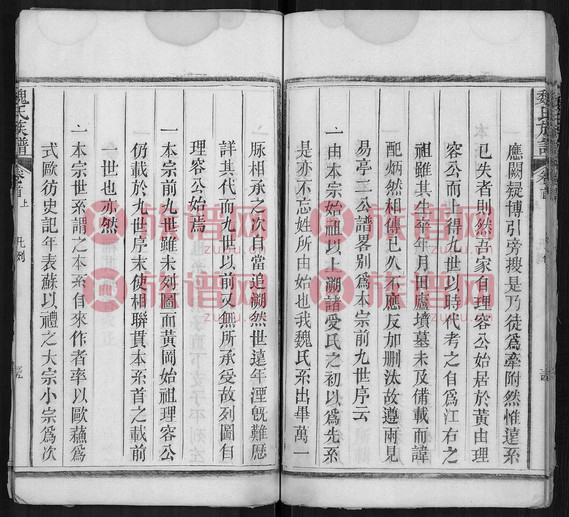 魏氏族譜
卷首
凡例
應闕疑博引旁搜是乃徒爲牽附然惟遠系
已失者則然吾家自理容公始居於黃由理
容公而上得九世以時代考之自爲江右之
祖雖其生卒年月里廬墳墓未及備載而諱
配炳然相傳已久不應反如刪汰故遵兩見
易亭二公譜畧别爲本宗前九世序云
一由本宗始祖以上溯諸受氏之初以爲先系
是亦不忘姓所由始也我魏氏系出畢萬一
脉相承之次自當追溯然世遠年湮旣難歷
詳其代而九世以前又無所承受故列圖自
理容公始焉
一本宗前九世雖未列圖而黃岡始祖理容公
仍載於九世序末使相聯貫本系首之載前
一世也亦然
一本宗世系謂之本系自來作者率以歐蘇爲
式歐彷史記年表蘇以禮之大宗小宗爲次
魏氏族譜
卷首上
凡例
族谱网
zupu.cn